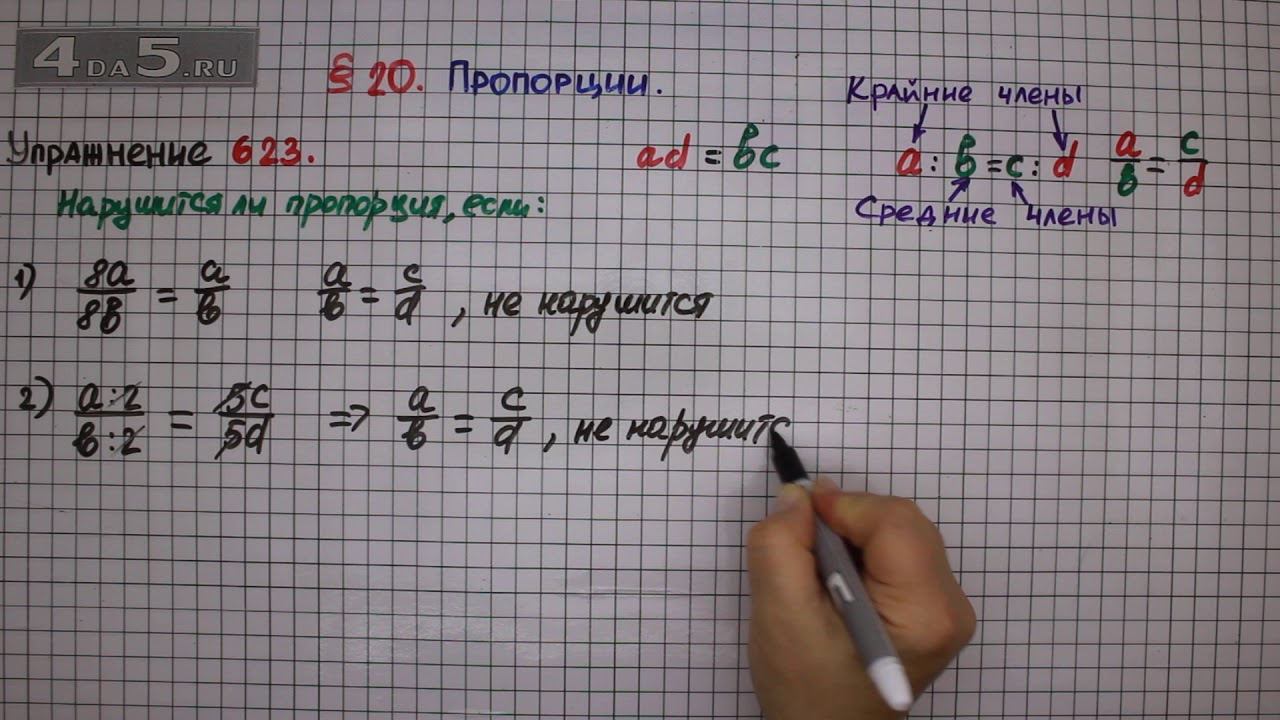 4DA5.RU
§ 20. Пропорции.
Крайние члены
Упражнение 623.
ad = bc
a : b = c : d a/b = c/d
Средние члены
Нарушится ли пропорция, если:
1) 8a/8b = a/b a/b = c/d , не нарушится
2) a:2/b:2 = 5c/5d => a/b = c/d , не нарушитс